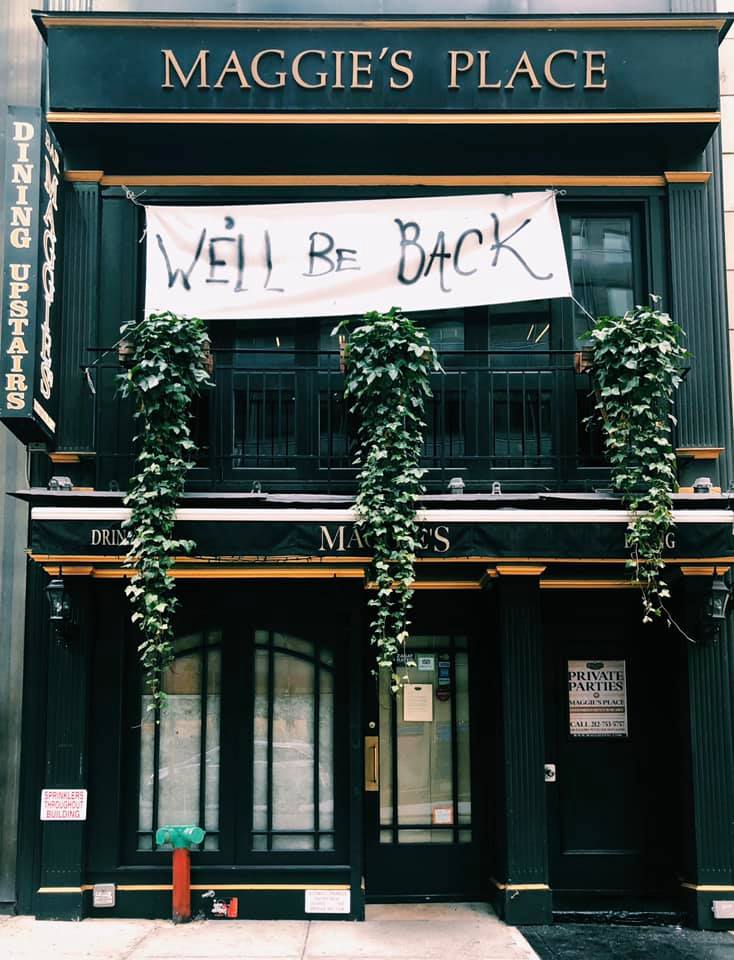 MAGGIE'S PLACE
DINING UPSTAIRS
BAR
WE'LL BE BACK
MAGGIE'S
SPRINKLERS
THROUGHOUT
BUILDING
PRIVATE
PARTIES
MAGGIE'S PLACE
CALL 212-753-5757